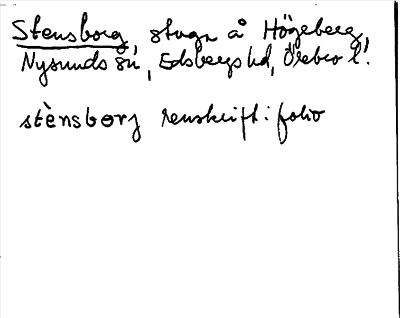 Stensborg, stuga å Högeberg,
Nysunds sn, Edsbergs hd, Örebro l.
stènsbɔrj renskrift: folio